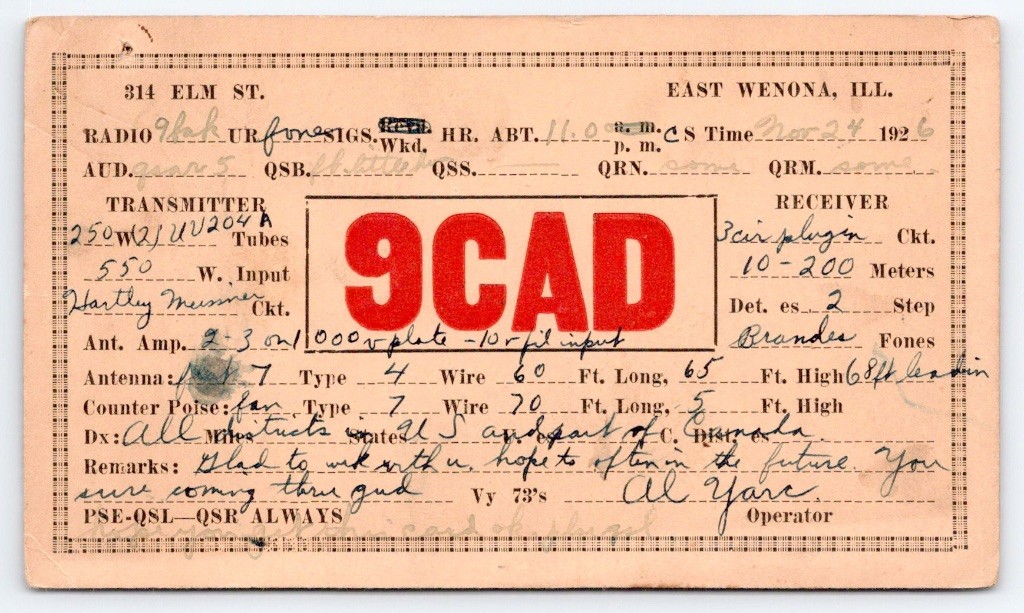 314 ELM ST. EAST WENONA, ILL.
RADIO UR fone SIGS. Wkd. HR. ABT. 11.0 a. m. p. m. C S Time Nov 24 1926
AUD. QSB. QSS. QRN. some QRM. some
TRANSMITTER RECEIVER
250 W (2) UV204A Tubes 3 cir plugin Ckt.
9CAD
550 W. Input 10-200 Meters
Hartley Meissner Ckt. Det. es 2 Step
Ant. Amp. 2-3 on 1000 v plate - 10 v fil input Brandes Fones
Antenna: 7 Type 4 Wire 60 Ft. Long, 65 Ft. High 68 ft lead in
Counter Poise: fan Type 7 Wire 70 Ft. Long, 5 Ft. High
Dx: All Miles districts States U S and part of C. Dist. es Canada.
Remarks: Glad to wk with u. hope to often in the future. You
sure coming thru gud Vy 73's Al Yarc.
PSE-QSL—QSR ALWAYS Operator